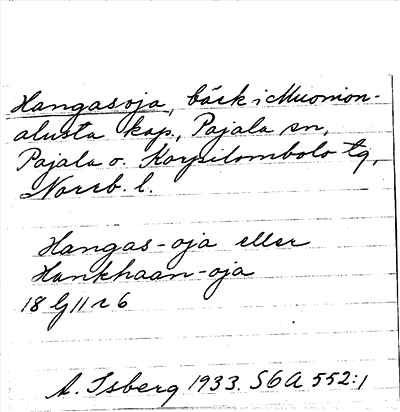 Hangasoja, bäck i Muonion-
alusta kap., Pajala sn,
Pajala o. Korpilombolo tg,
Norrb. l.
Hangas-oja eller
Hankhaan-oja
18 Lj 11 r 6
A. Isberg 1933. SGA 552:1